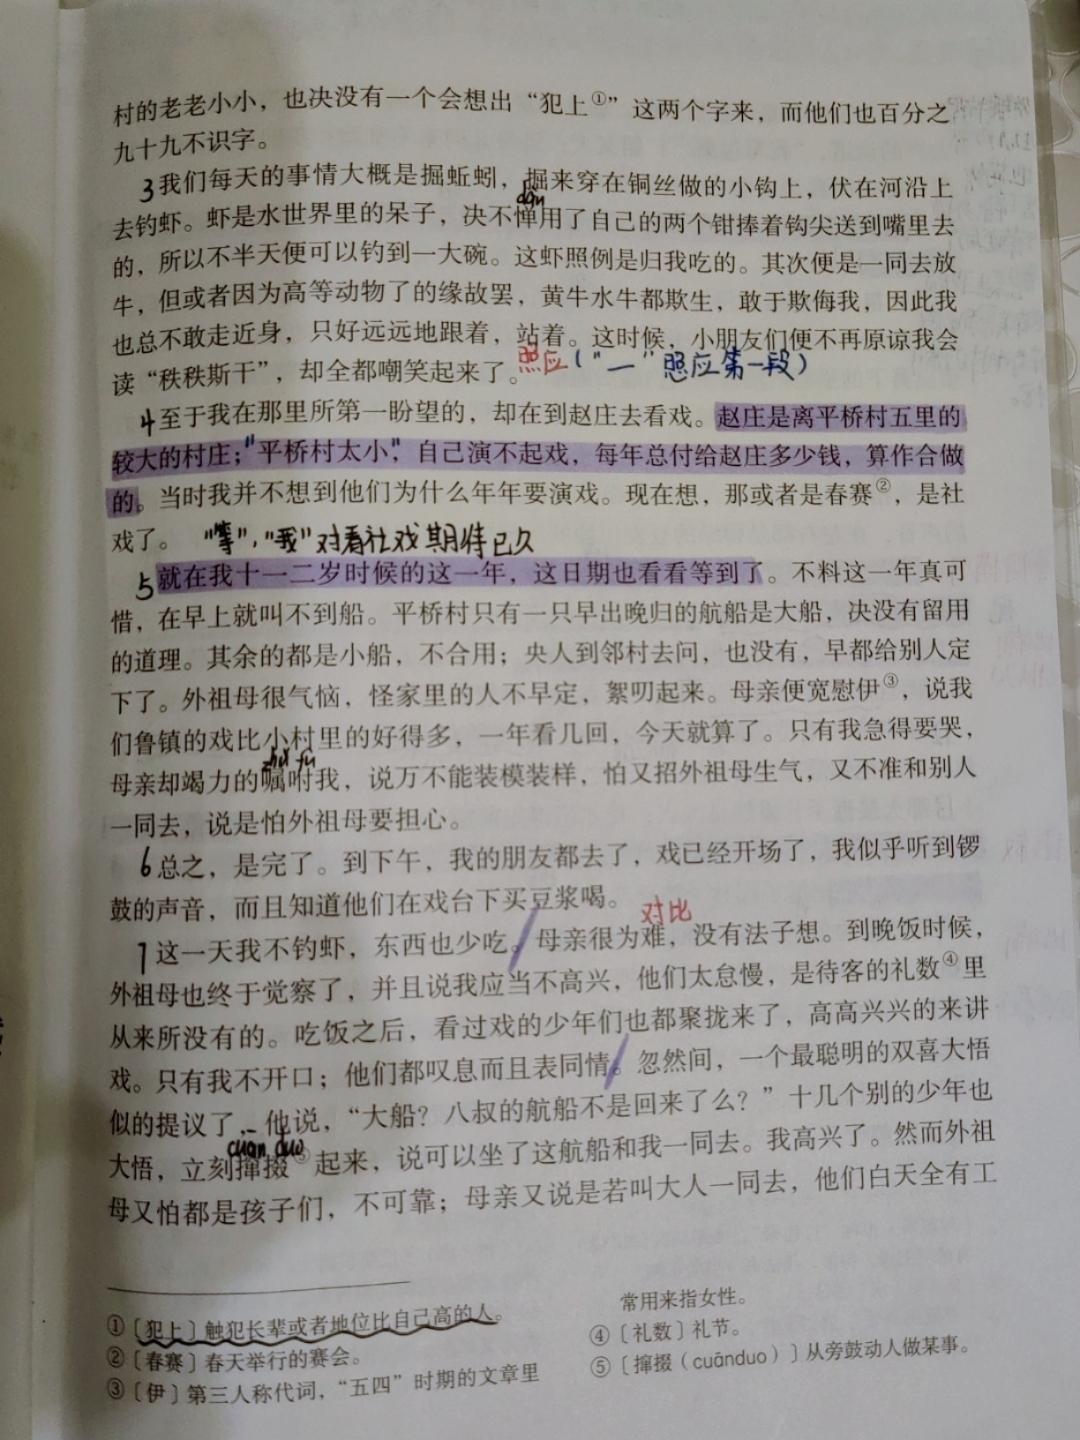 村的老老小小，也决没有一个会想出“犯上①”这两个字来，而他们也百分之
九十九不识字。
3我们每天的事情大概是掘蚯蚓，掘来穿在铜丝做的小钩上，伏在河沿上
dàn
去钓虾。虾是水世界里的呆子，决不惮用了自己的两个钳捧着钩尖送到嘴里去
的，所以不半天便可以钓到一大碗。这虾照例是归我吃的。其次便是一同去放
牛，但或者因为高等动物了的缘故罢，黄牛水牛都欺生，敢于欺侮我，因此我
也总不敢走近身，只好远远地跟着，站着。这时候，小朋友们便不再原谅我会
读“秩秩斯干”，却全都嘲笑起来了。
照应（“一”照应第一段）
4至于我在那里所第一盼望的，却在到赵庄去看戏。赵庄是离平桥村五里的
较大的村庄；“平桥村太小”，自己演不起戏，每年总付给赵庄多少钱，算作合做
的。当时我并不想到他们为什么年年要演戏。现在想，那或者是春赛②，是社
戏了。
“等”，“我”对看社戏期待已久
5就在我十一二岁时候的这一年，这日期也看看等到了。不料这一年真可
惜，在早上就叫不到船。平桥村只有一只早出晚归的航船是大船，决没有留用
的道理。其余的都是小船，不合用；央人到邻村去问，也没有，早都给别人定
下了。外祖母很气恼，怪家里的人不早定，絮叨起来。母亲便宽慰伊③，说我
们鲁镇的戏比小村里的好得多，一年看几回，今天就算了。只有我急得要哭，
zhǔ fù
母亲却竭力的嘱咐我，说万不能装模装样，怕又招外祖母生气，又不准和别人
一同去，说是怕外祖母要担心。
6总之，是完了。到下午，我的朋友都去了，戏已经开场了，我似乎听到锣
鼓的声音，而且知道他们在戏台下买豆浆喝。
对比
7这一天我不钓虾，东西也少吃。母亲很为难，没有法子想。到晚饭时候，
外祖母也终于觉察了，并且说我应当不高兴，他们太怠慢，是待客的礼数④里
从来所没有的。吃饭之后，看过戏的少年们也都聚拢来了，高高兴兴的来讲
戏。只有我不开口；他们都叹息而且表同情。忽然间，一个最聪明的双喜大悟
似的提议了，他说，“大船？八叔的航船不是回来了么？”十几个别的少年也
cuān duo
大悟，立刻撺掇⑤起来，说可以坐了这航船和我一同去。我高兴了。然而外祖
母又怕都是孩子们，不可靠；母亲又说是若叫大人一同去，他们白天全有工
①〔犯上〕触犯长辈或者地位比自己高的人。
②〔春赛〕春天举行的赛会。
③〔伊〕第三人称代词，“五四”时期的文章里
常用来指女性。
④〔礼数〕礼节。
⑤〔撺掇（cuānduo）〕从旁鼓动人做某事。